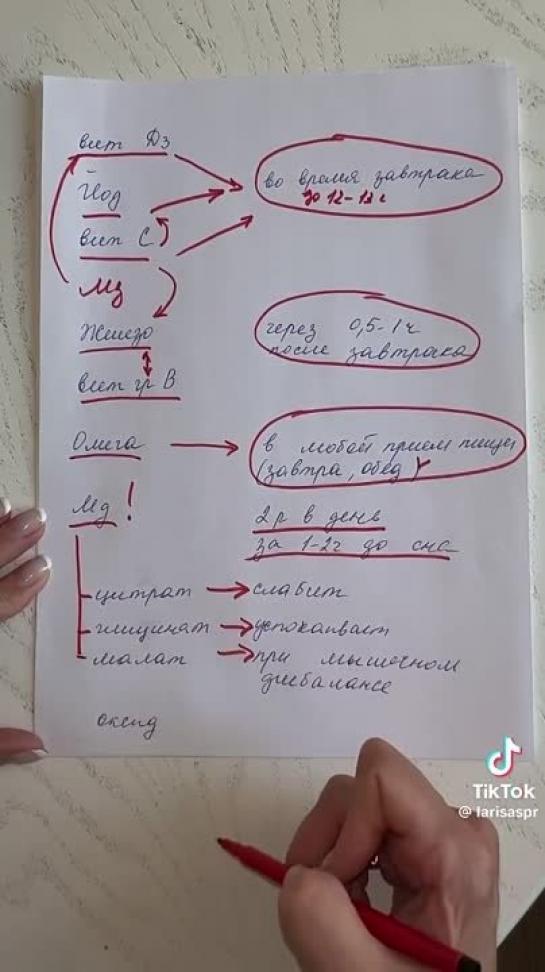 вит D3
во время завтрака
Йод
до 12-13 ч
вит С
Mg
Железо
через 0,5-1ч
после завтрака
вит гр В
Омега
в любой прием пищи
(завтра, обед)
Mg!
2р в день
за 1-2ч до сна
цитрат
слабит
глицинат
успокаивает
малат
при мышечном
дисбалансе
оксид
TikTok
@larisaspr